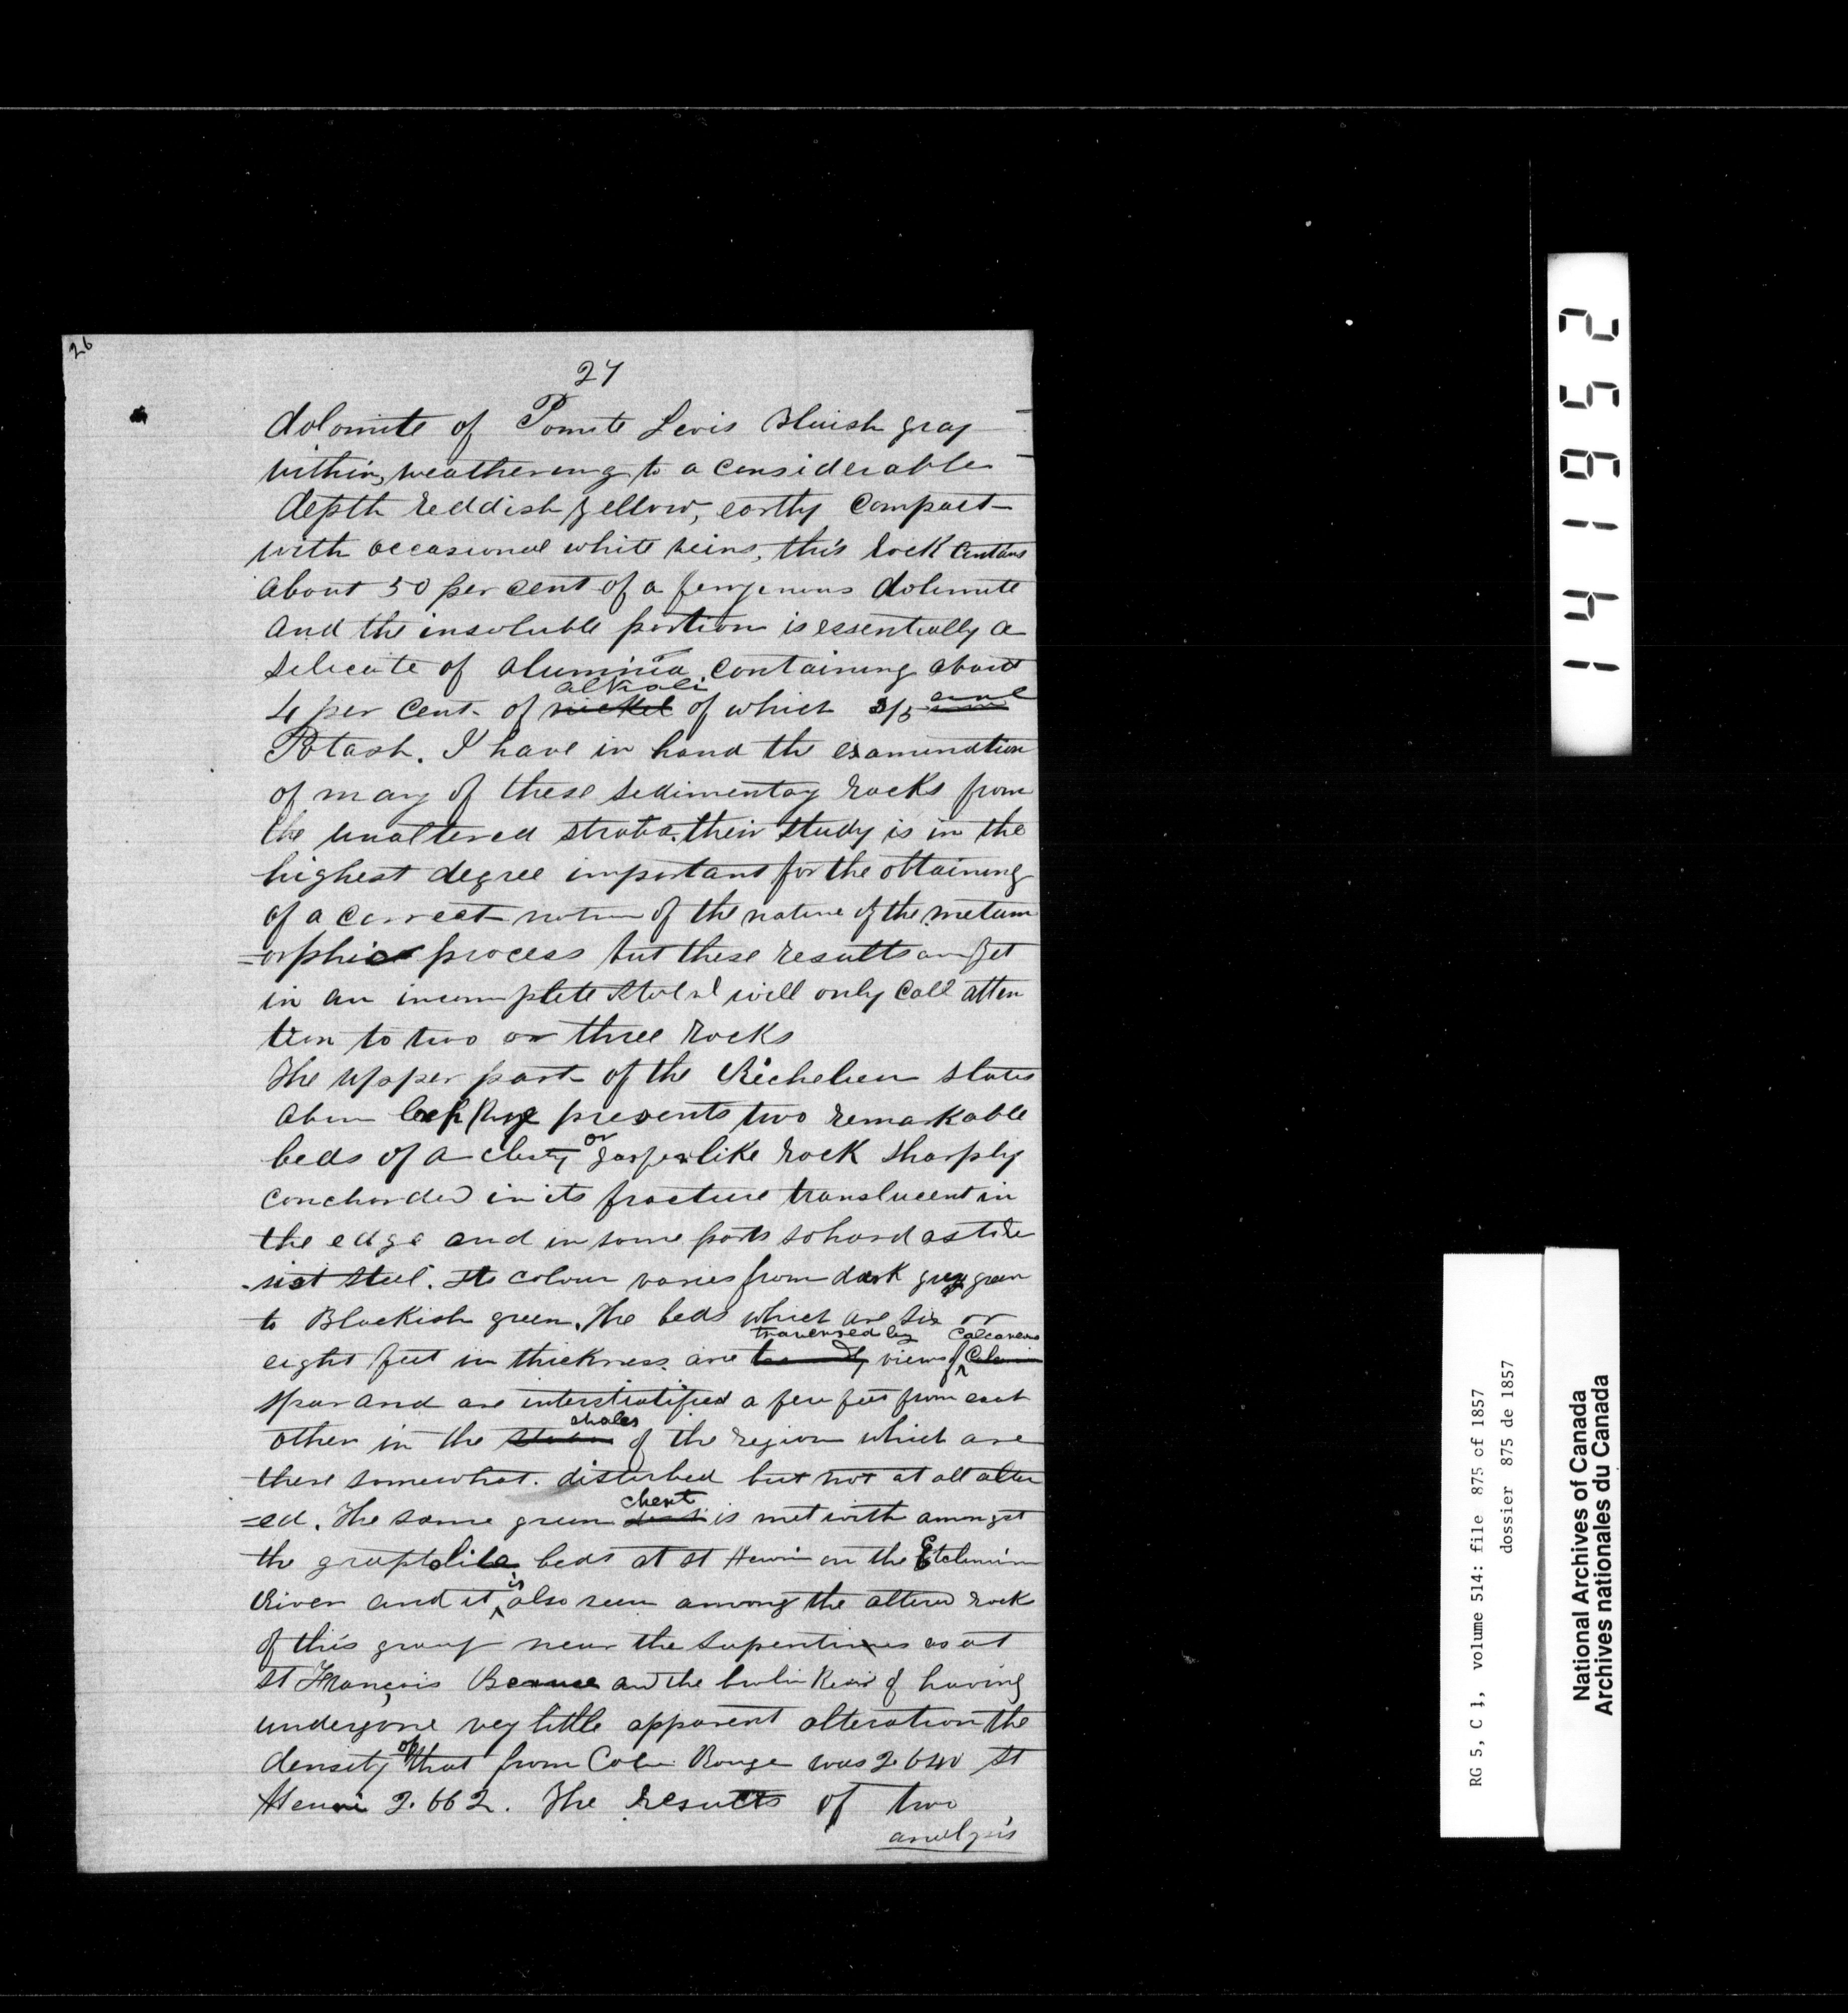 26
27
dolomite of Pointe Levis bluish gray
within, weathering to a considerable
depth reddish yellow, earthy compact
with occasional white veins, this rock contains
about 50 per cent of a ferrjinous dolomite
and the insoluble portion is essentially a
silicate of alumina containing about
alkali
4 per cent of nickel of which 3/5
Potash. I have in hand the examination
of many of these sedimentay rocks from
the unaltered strata. their study is in the
highest degree important for the attaining
of a correct notion of the nature of the metam
=orphic process but these results are yet
in an incomplete state I will only call atten
tion to two or three rocks
The upper part of the Richelieu slates
above presents two remarkable
beds of a cherty or jasper like rock sharply
conchoided in its fracture translucent in
the edge and in some parts so hard as to re
-sist steel. Its colour varies from dark gray green
to Blackish green. The beds which are six or
traversed by calcareous
eight feet in thickness are views of
spar and are interstratified a few feet from each
shales
other in the of the region which are
there somewhat. disturbed but not at all alter
chert
=ed. The same green is met with amongst
the graptolite beds at St Henri on the Etchemin
River and it is also seen among the altered rock
of this group near the supentines as at
St François Beauce and the of having
undergone vey little apparent alteration the
density of that from Rouge was 2.640 St
Henri 2.662. The results of two
analysis
141952
RG 5, C 1, volume 514: file 875 of 1857
dossier 875 de 1857
National Archives of Canada
Archives nationales du Canada